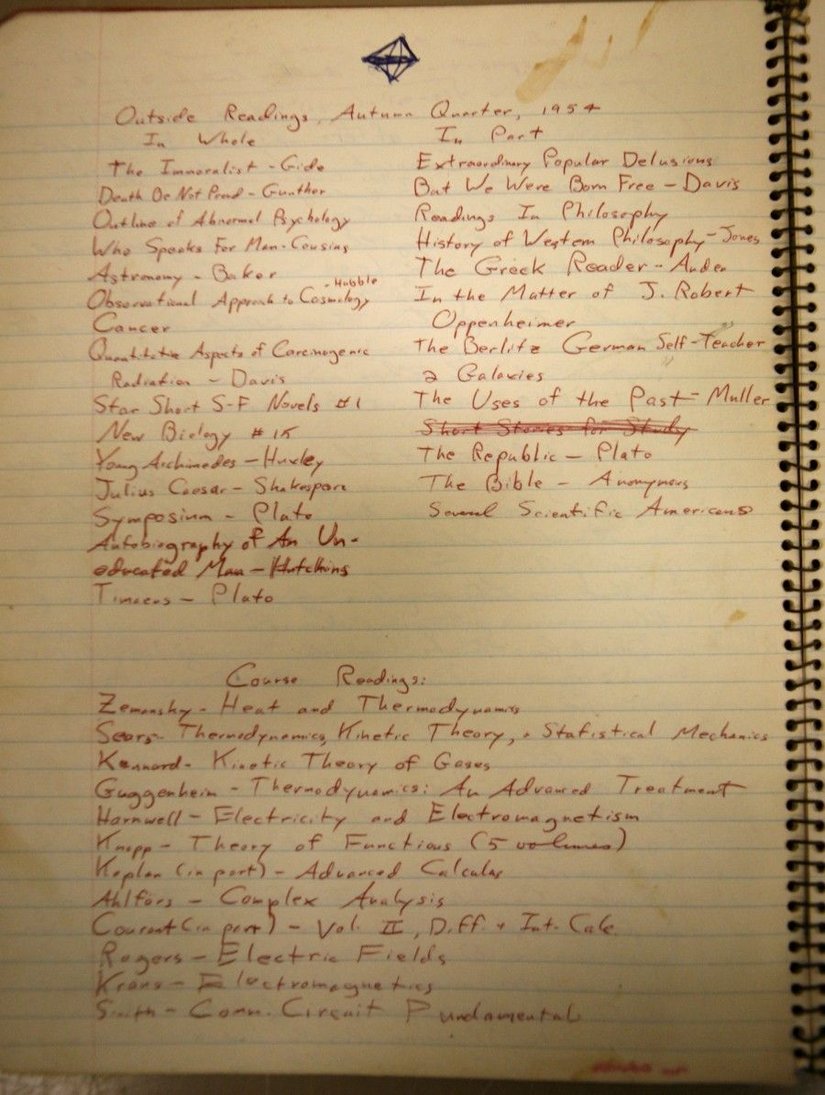 Outside Readings, Autumn Quarter, 1954
In Whole
The Immoralist - Gide
Death Be Not Proud - Gunther
Outline of Abnormal Psychology
Who Speaks For Man - Cousins
Astronomy - Baker
Observational Approach to Cosmology - Hubble
Cancer
Quantitative Aspects of Carcinogenic
Radiation - Davis
Star Short S-F Novels #1
New Biology #15
Young Archimedes - Huxley
Julius Caesar - Shakespeare
Symposium - Plato
Autobiography of An Un-
educated Man - Hutchins
Timaeus - Plato
In Part
Extraordinary Popular Delusions
But We Were Born Free - Davis
Readings In Philosophy
History of Western Philosophy - Jones
The Greek Reader - Auden
In the Matter of J. Robert
Oppenheimer
The Berlitz German Self-Teacher
2 Galaxies
The Uses of the Past - Muller
Short Stories for Study
The Republic - Plato
The Bible - Anonymous
Several Scientific Americans
Course Readings:
Zemansky - Heat and Thermodynamics
Sears - Thermodynamics, Kinetic Theory, + Statistical Mechanics
Kennard - Kinetic Theory of Gases
Guggenheim - Thermodynamics: An Advanced Treatment
Harnwell - Electricity and Electromagnetism
Knopp - Theory of Functions (5 volumes)
Kaplan (in part) - Advanced Calculus
Ahlfors - Complex Analysis
Courant (in part) - Vol. II, Diff. + Int. Calc.
Rogers - Electric Fields
Kraus - Electromagnetics
Smith - Comm. Circuit Fundamentals